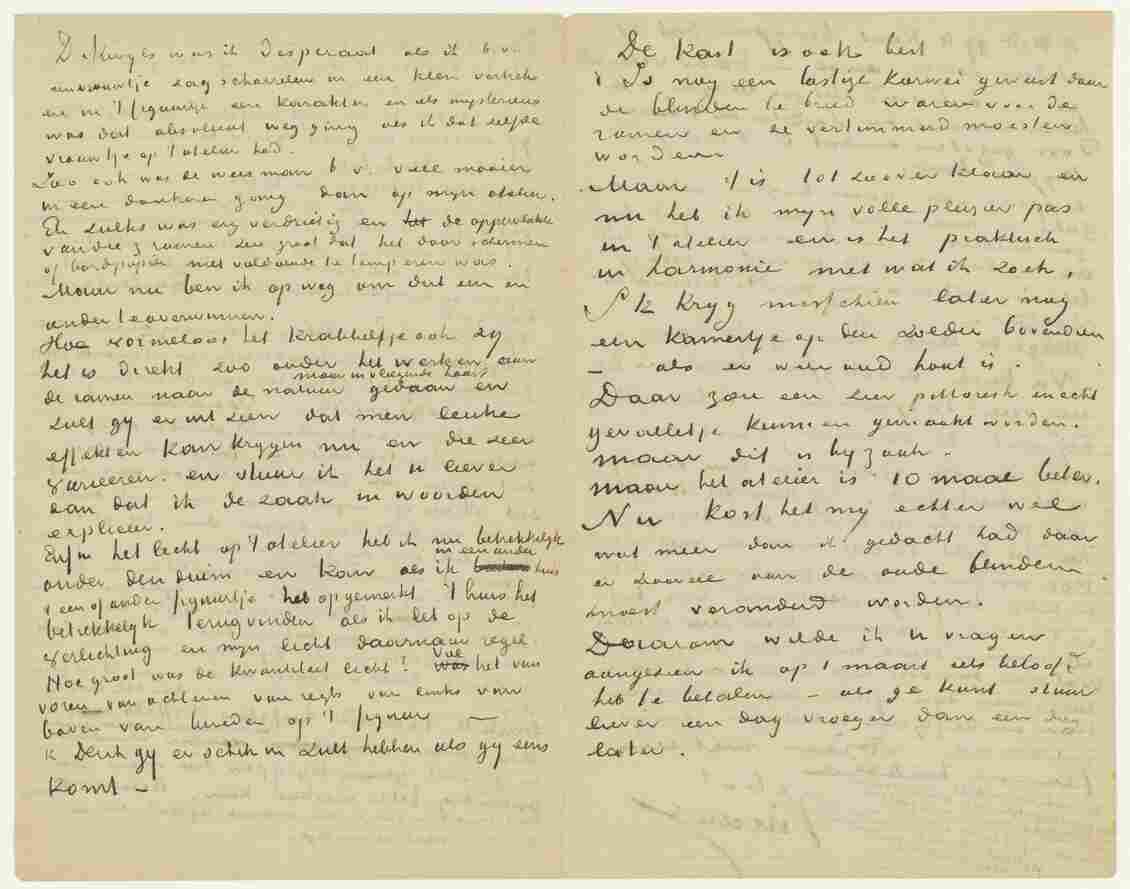 Dikwijls was ik desperaat als ik b.v.
een vrouwtje zag scharrelen in een klein vertrek
en in 't figuurtje een karakter en iets mysterieus
was dat absoluut weg ging als ik dat zelfde
vrouwtje op 't atelier had.
Zoo ook was de weesman b.v. veel mooier
in een donkeren gang dan op mijn atelier.
En zulks was erg verdrietig en het de oppervlakte
van die 3 ramen zoo groot dat het door schermen
of bordpapier niet voldoende te temperen was.
Maar nu ben ik op weg om dat een en
ander te overwinnen.
Hoe vormeloos het krabbeltje ook zij
het is direkt zoo onder het werken aan
maar in vliegende haast
de ramen naar de natuur gedaan en
zult gij er uit zien dat men leuke
effekten kan krijgen nu en die zeer
varieeren. en stuur ik het u liever
dan dat ik de zaak in woorden
expliceer.
Enfin het licht op 't atelier heb ik nu betrekkelijk
in een ander
onder den duim en kan als ik huis
't een of ander figuurtje heb opgemerkt 't thuis het
betrekkelijk terugvinden als ik let op de
verlichting en mijn licht daarnaar regel
Hoe groot was de kwantiteit licht? viel
was het van
voren van achteren van regts van links van
boven van beneden op 't figuur —
ik denk gij er schik in zult hebben als gij eens
komt –
De kast is ook best
't Is nog een lastige karwei geweest daar
de blinden te breed waren voor de
ramen en de vertimmerd moesten
worden
Maar 't is tot zoover klaar en
nu heb ik mijn volle pleizier pas
in 't atelier en is het praktisch
in harmonie met wat ik zoek.
Ik krijg misschien later nog
een kamertje op den zolder bovendien
– als er weer oud hout is.
Daar zou een zeer pittoresk en echt
gevalletje kunnen gemaakt worden.
maar dit is bijzaak.
maar het atelier is 10 maal beter.
Nu kost het mij echter wel
wat meer dan ik gedacht had daar
er zooveel aan de oude blinden
moest veranderd worden.
Daarom wilde ik u vragen
aangezien ik op 1 maart iets beloofd
heb te betalen – als ge kunt stuur
liever een dag vroeger dan een dag
later.